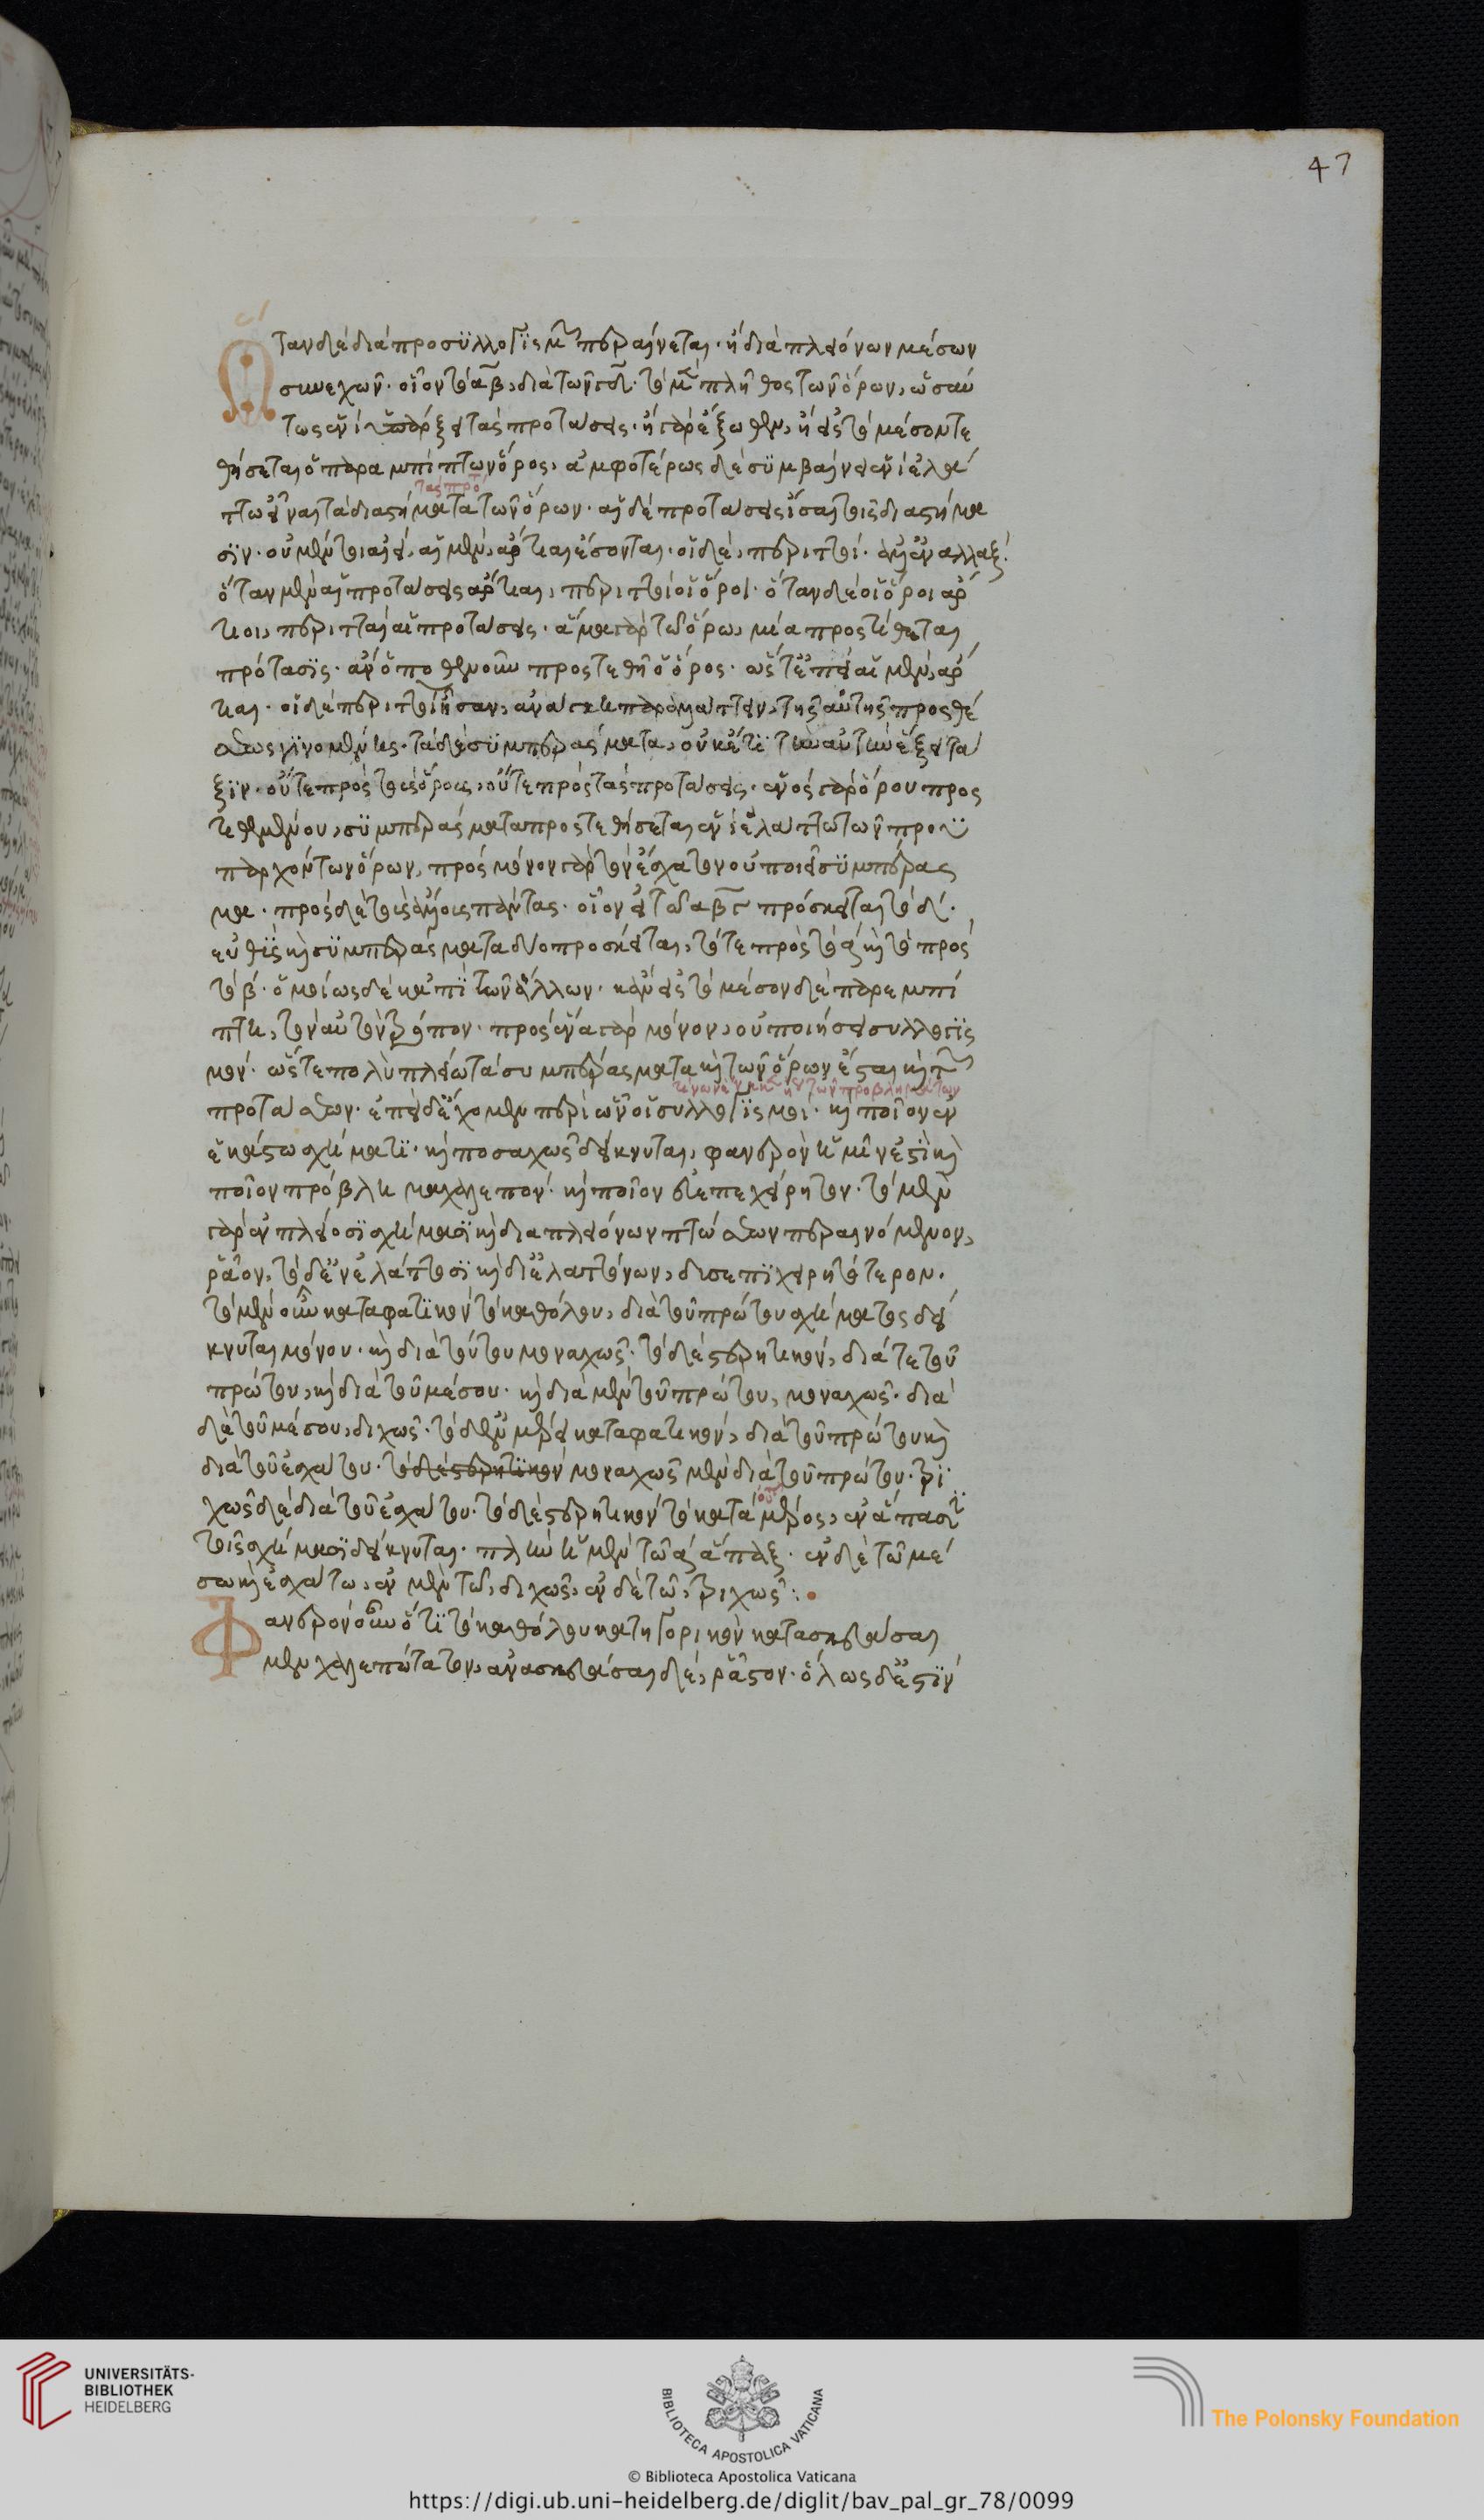 47
Ὅταν δὲ διὰ προσυλλογισμ περαίνεται· ἢ διὰ πλειόνων μέσων
συνεχῶν· οἷον τὸ αβ, διὰ τῶν γδ· τὸ μὲν πλῆθος τῶν ὅρων, ὡσαύ
τως ἑνὶ ὑπερέξει τὰς προτάσεις· ἢ γὰρ ἔξωθεν, ἢ εἰς τὸ μέσον τε
θήσεται ὁ παρεμπίπτων ὅρος, ἀμφοτέρως δὲ συμβαίνει ἑνὶ ἐλά
τας προ
ττω εἶναι τὰ διαστήματα τῶν ὅρων· αἱ δὲ προτάσεις ἴσαι τοῖς διαστήμα
σιν· οὐ μὲν τοι αἰεί, αἱ μὲν, ἄρτιαι ἔσονται· οἱ δὲ, περιττοί· ἀλλ' ἐναλλάξ·
ὅταν μὲν αἱ προτάσεις ἄρτιαι, περιττοὶ οἱ ὅροι· ὅταν δὲ οἱ ὅροι ἄρ
τιοι, περιτταὶ αἱ προτάσεις· ἅμα γὰρ τῷ ὅρῳ, μία προστίθεται
πρότασις· ἂν ὁποθενοῦν προστεθῇ ὁ ὅρος· ὥστ' ἐπεὶ αἱ μὲν, ἄρ
τιαι· οἱ δὲ περιττοὶ ἦσαν, ἀνάγκη παραλλάττειν, τῆς αὐτῆς προσθέ
σεως γινομένης· τὰ δὲ συμπεράσματα, οὐκέτι τὴν αὐτὴν ἕξει τά
ξιν· οὔτε πρὸς τοὺς ὅρους, οὔτε πρὸς τὰς προτάσεις· ἑνὸς γὰρ ὅρου προσ
τιθεμένου, συμπεράσματα προστεθήσεται ἑνὶ ἐλάττω τῶν προϋ
παρχόντων ὅρων, πρὸς μόνον γὰρ τὸν ἔσχατον οὐ ποιεῖ συμπέρασ
μα· πρὸς δὲ τοὺς ἄλλους πάντας· οἷον εἰ τῷ αβγ πρόσκειται τὸ δ·
εὐθὺς καὶ συμπεράσματα δύο προσκειται, τό τε πρὸς τὸ α καὶ τὸ πρὸς
τὸ β· ὁμοίως δὲ κἀπὶ τῶν ἄλλων· κἂν εἰς τὸ μέσον δὲ παρεμπί
πτη, τὸν αὐτὸν τρόπον· πρὸς ἕνα γὰρ μόνον, οὐ ποιήσει συλλογισ
μόν· ὥστε πολὺ πλείω τὰ συμπεράσματα καὶ τῶν ὅρων ἔσται καὶ τῶν
προτάσεων· ἐπεὶ δ' ἔχομεν περὶ ὧν οἱ συλλογισμοί· καὶ ποῖον ἐν
ἑκάστῳ σχήματι· καὶ ποσαχῶς δείκνυται, φανερὸν ἡμῖν ἐστὶ καὶ
ποῖον πρόβλημα χαλεπόν· καὶ ποῖον εὐεπιχείρητον· τὸ μὲν
γὰρ ἐν πλείοσι σχήμασι καὶ διὰ πλειόνων πτώσεων περαινόμενον,
ῥᾷον, τὸ δ' ἐν ἐλάττοσι καὶ δι' ἐλαττόνων, δυσεπιχειρητότερον.
τὸ μὲν οὖν καταφατικὸν τὸ καθόλου, διὰ τοῦ πρώτου σχήματος δεί
κνυται μόνου· καὶ διὰ τούτου μοναχῶς· τὸ δὲ στερητικόν, διά τε τοῦ
πρώτου, καὶ διὰ τοῦ μέσου· καὶ διὰ μὲν τοῦ πρώτου, μοναχῶς· διὰ
δὲ τοῦ μέσου, διχῶς· τὸ δ' ἐν μέρει καταφατικόν, διὰ τοῦ πρώτου καὶ
διὰ τοῦ ἐσχάτου· τὸ δὲ στερητικὸν μοναχῶς μὲν διὰ τοῦ πρώτου· τρι
χῶς δὲ διὰ τοῦ ἐσχάτου· τὸ δὲ στερητικὸν τὸ κατὰ μέρος, ἐν ἅπασι
τοῖς σχήμασι δείκνυται· πλὴν ἐν μὲν τῷ α ἅπαξ· ἐν δὲ τῷ μέ
σῳ καὶ ἐσχάτῳ, ἐν μὲν τῷ, διχῶς, ἐν δὲ τῷ, τριχῶς:
Φανερὸν οὖν ὅτι τὸ καθόλου κατηγορικὸν κατασκευάσαι
μὲν χαλεπώτατον, ἀνασκευάσαι δὲ, ῥᾷστον· ὅλως δ' ἔστιν
UNIVERSITÄTS-
BIBLIOTHEK
HEIDELBERG
BIBLIOTECA APOSTOLICA VATICANA
The Polonsky Foundation
© Biblioteca Apostolica Vaticana
https://digi.ub.uni-heidelberg.de/diglit/bav_pal_gr_78/0099